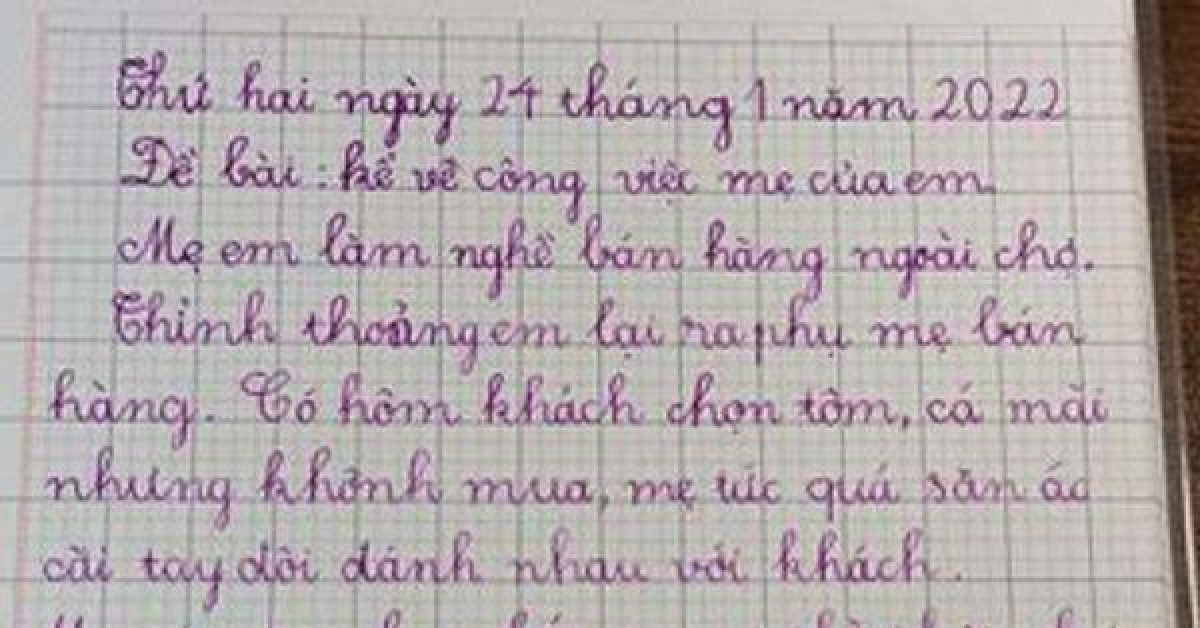 Thứ hai ngày 24 tháng 1 năm 2022
Đề bài : kể về công việc mẹ của em.
Mẹ em làm nghề bán hàng ngoài chợ.
Thỉnh thoảng em lại ra phụ mẹ bán
hàng. Có hôm khách chọn tôm, cá mãi
nhưng khônh mua, mẹ tức quá săn áo
cãi tay đôi đánh nhau với khách.